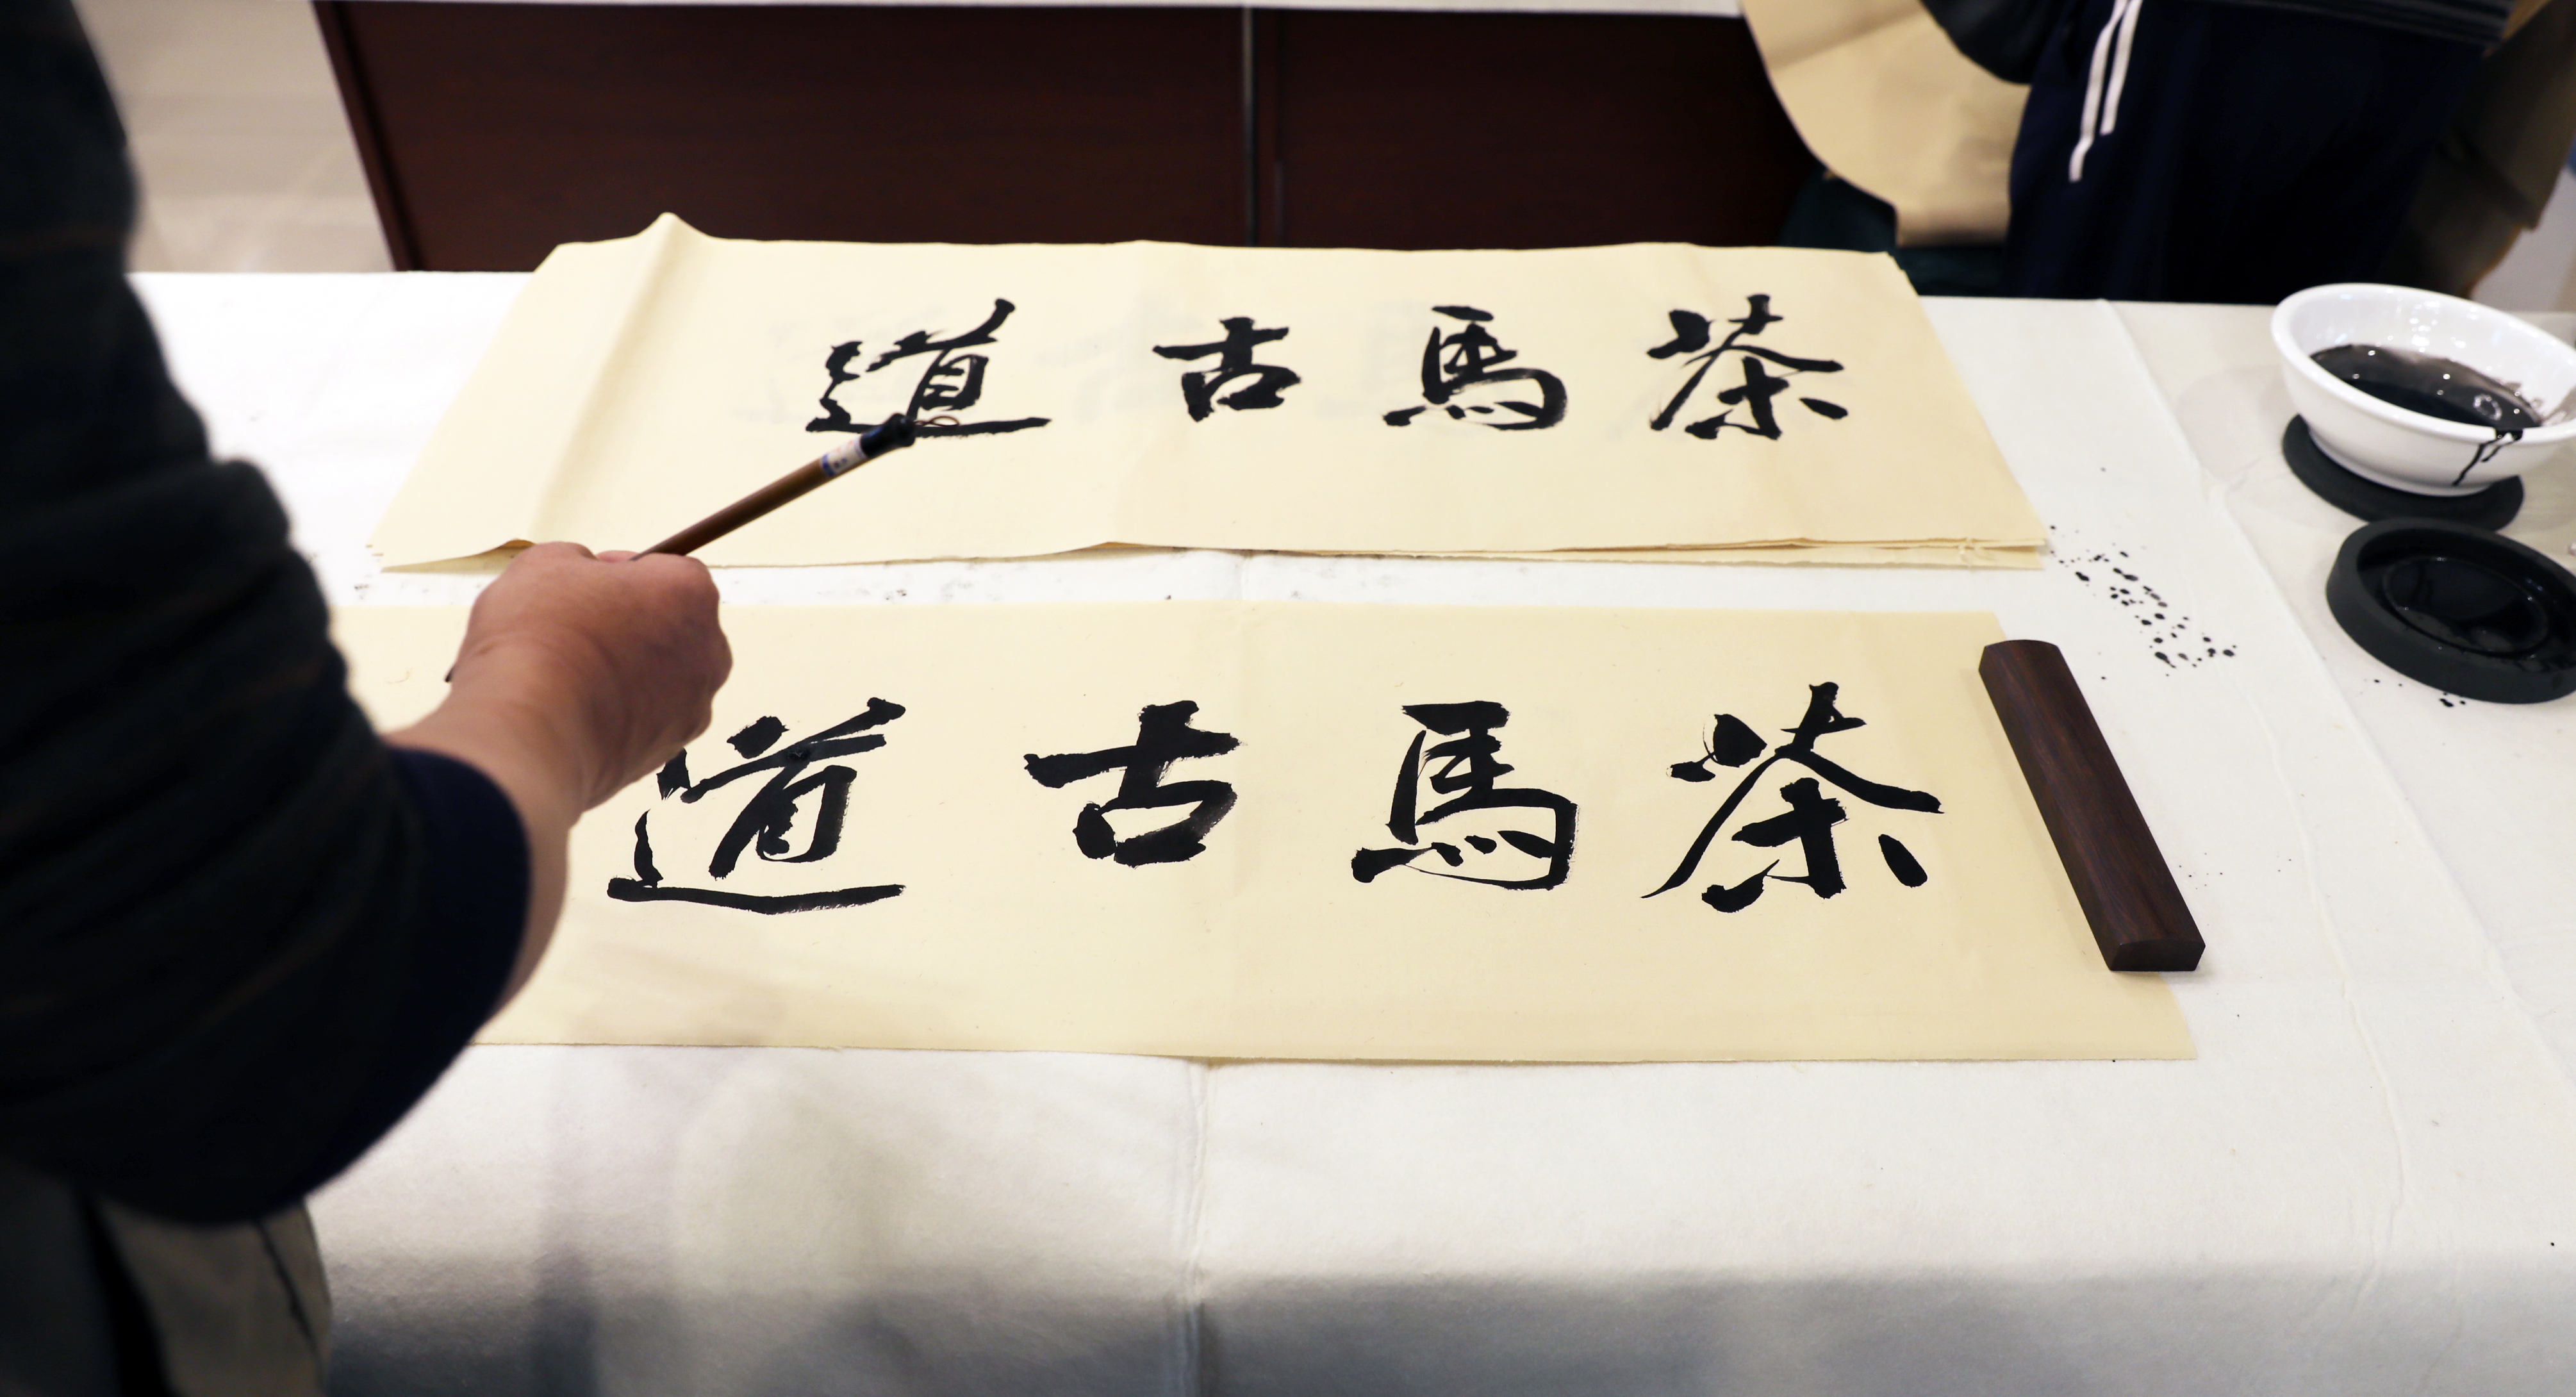 茶馬古道
茶馬古道